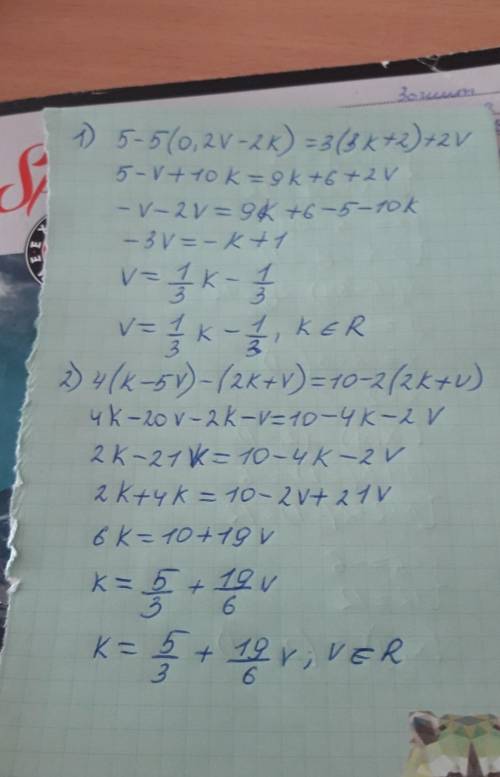 Зошит
1) 5-5(0,2v-2k)=3(3k+2)+2v
5-v+10k=9k+6+2v
-v-2v=9k+6-5-10k
-3v=-k+1
v=1/3 k - 1/3
v=1/3 k - 1/3, k∈R
2) 4(k-5v)-(2k+v)=10-2(2k+v)
4k-20v-2k-v=10-4k-2v
2k-21v=10-4k-2v
2k+4k=10-2v+21v
6k=10+19v
k=5/3 + 19/6 v
k=5/3 + 19/6 v, v∈R